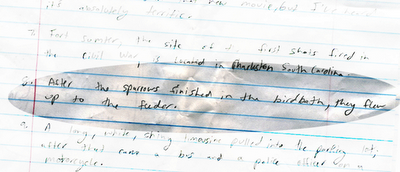 new movie, but I's
it's absolutely terrific.
7. Fort Sumter, the site of the first shots fired in
the Civil War, is located in Charleston, South Carolina.
8. After the sparrows finished in the birdbath, they flew
up to the feeder.
9. A long, white, shiny limousine pulled into the parking lot;
after that came a bus and a police officer on a
motorcycle.